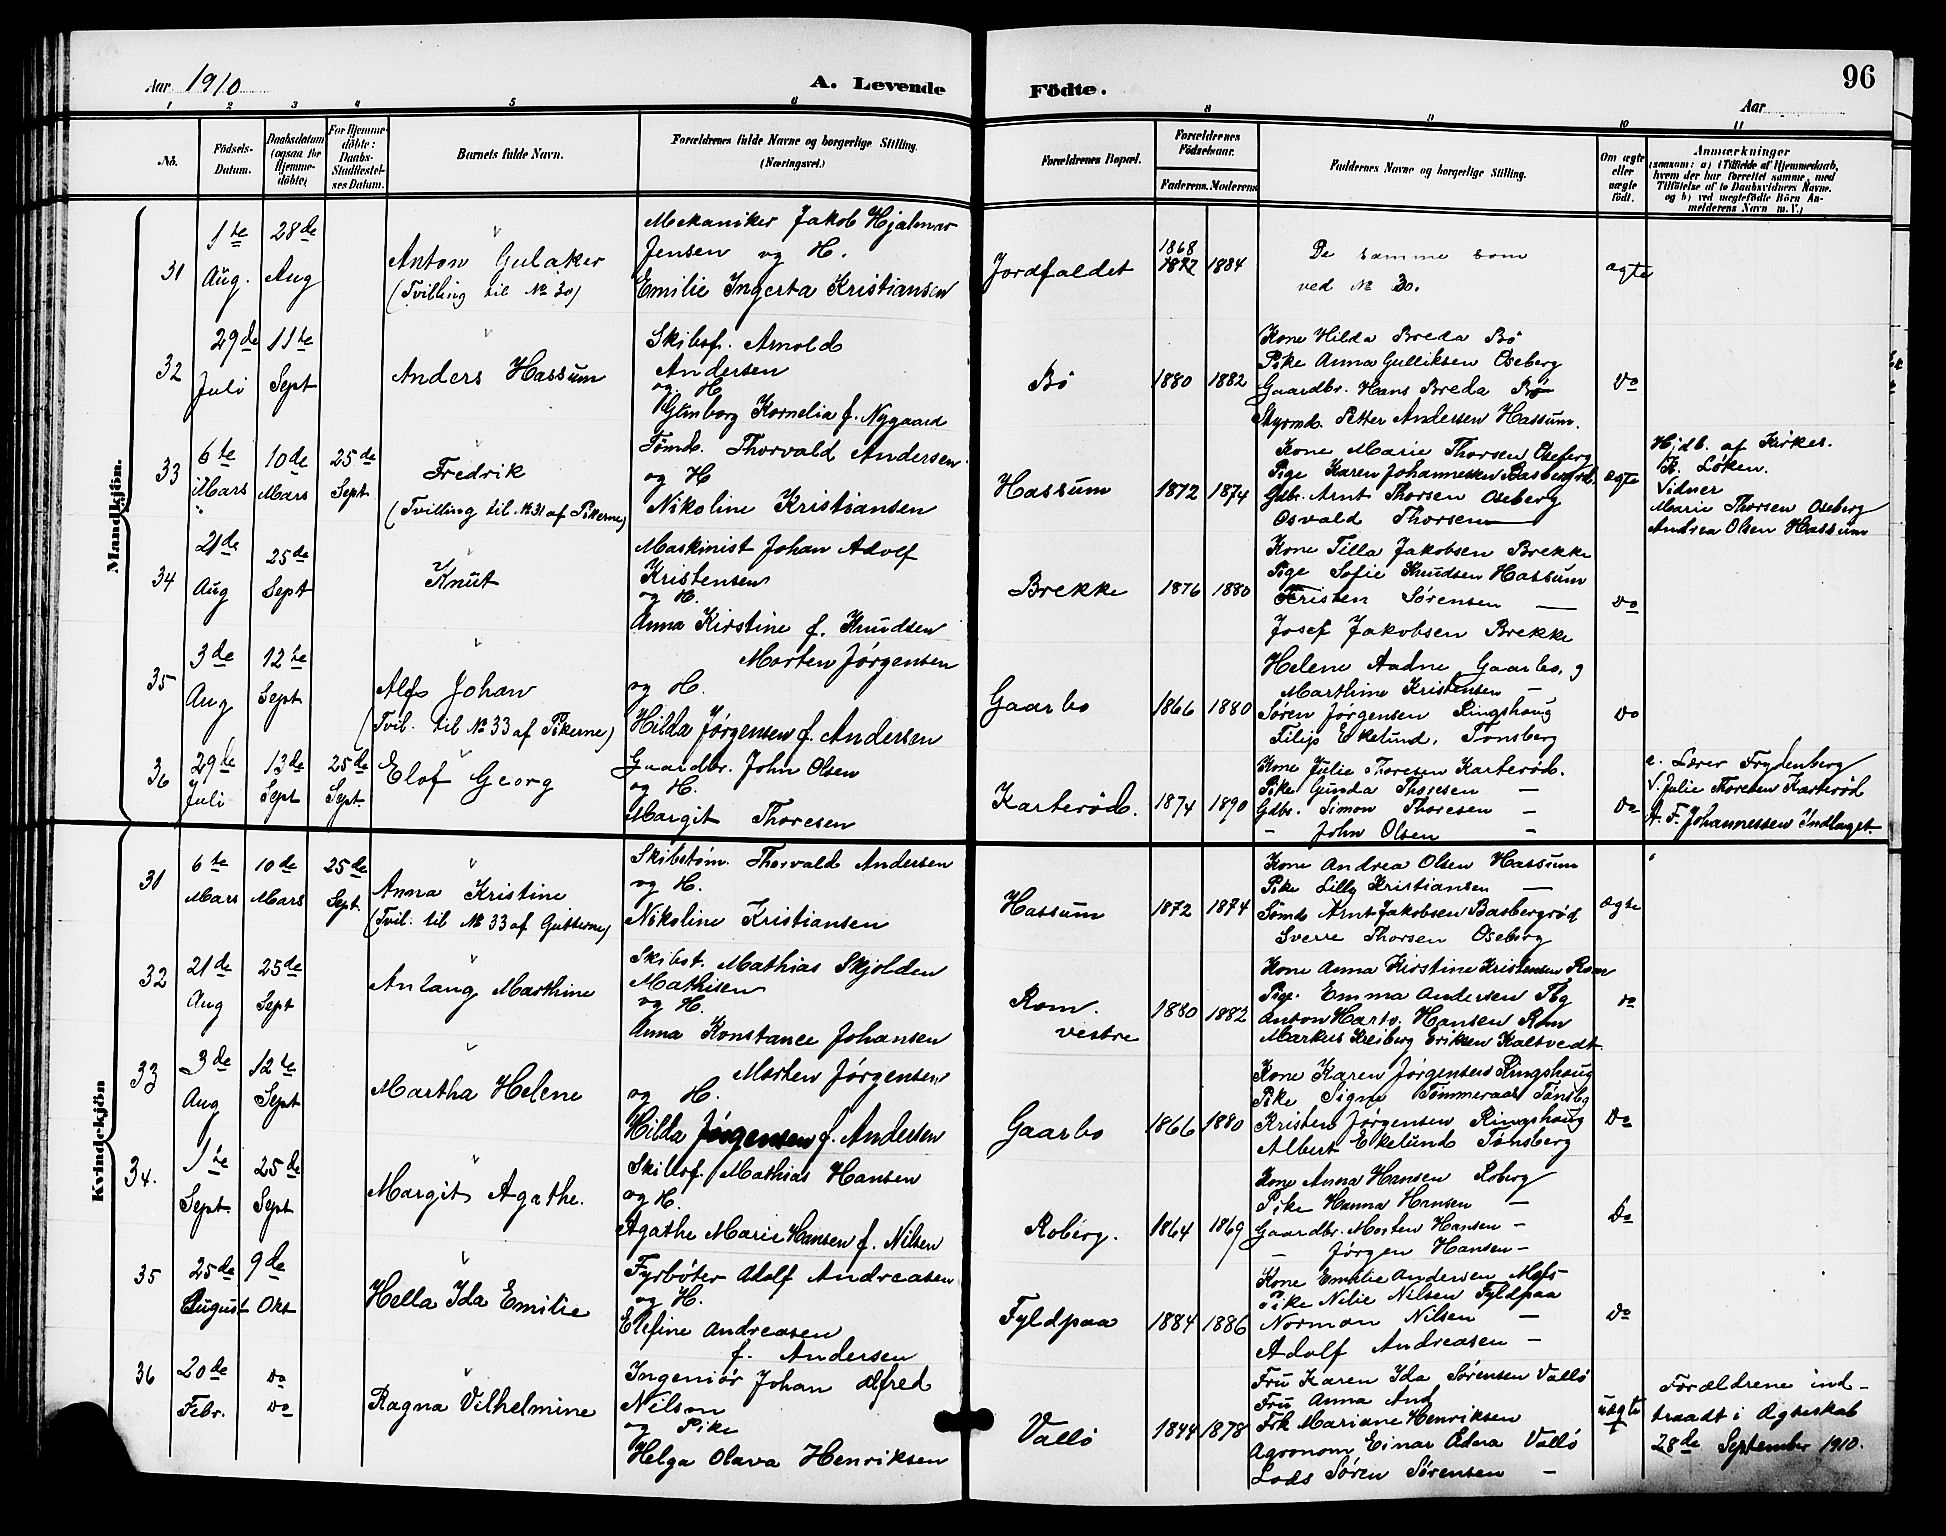 Aar 1910
A. Levende Födte.
96
Aar
1 2 3 4 5 6 8 9 10 11
No.
Födsels-Datum.
Daabsdatum (ogsaa for Hjemme-döbte)
For Hjemme-döbte: Daabs-Stadfæstel-ses Datum.
Barnets fulde Navn.
Forældrenes fulde Navne og borgerlige Stilling. (Næringsvei.)
Forældrenes Bopæl.
Forældrenes Födselsaar.
Faderens. Moderens.
Faddernes Navne og borgerlige Stilling.
Om ægte eller uægte födt.
Anmærkninger
(saasom: a) i Tilfælde af Hjemmedaab,
hvem der har forrettet samme, med
Tilföielse af to Daabsvidners Navne.
og b) ved uægtefödte Börn An-
melderens Navn m.V.)
Mandkjön.
31
1te Aug.
28de Aug
Anton Gulaker
(Tvilling til No 30)
Mekaniker Jakob Hjalmar
Jensen og H.
Emilie Ingerta Kristiansen
Jordfaldet
1868
1872 1884
De samme som
ved No 30.
ægte
32
29de Juli
11te Sept
Anders Hassum
Skibsf. Arnold
Andersen
og H
Gunborg Kornelia f. Nygaard
Bö
1880 1882
Kone Hilda Breda Bö
Pike Anna Gulliksen Oseberg
Gaardbr. Hans Breda Bö
Styrmd. Petter Andersen Hassum.
Do
33
6te Mars
10de Mars
25de Sept
Fredrik
(Tvilling til No 31 af Pikerne)
Tømd. Thorvald Andersen
og H
Nikoline Kristiansen
Hassum
1872 1874
Kone Marie Thorsen Oseberg
Pige Karen Johannessen Basbergrød
Gdbr. Arnt Thorsen Oseberg
Osvald Thorsen —
ægte
Hjdb. af Kirkes.
K. Løken.
Vidner
Marie Thorsen Oseberg
Andrea Olsen Hassum
34
21de Aug
25de Sept
Knut
Maskinist Johan Adolf
Kristensen
og H.
Anna Kirstine f. Knudsen
Brekke
1876 1880
Kone Tilla Jakobsen Brekke
Pige Sofie Knudsen Hassum
Kristen Sørensen —
Josef Jakobsen Brekke
Do
35
3de Aug
12te Sept
Alfs Johan
(Tvil. til No 33 af Pikerne)
Morten Jørgensen
og H.
Hilda Jørgensen f. Andersen
Gaarbo
1866 1880
Helene Aadne Gaarbo.
Marthine Kristensen —
Søren Jørgensen Ringshaug
Filip Ekelund, Tønsberg
Do
36
29te Juli
13de Sept
25de Sept.
Elof Georg
Gaardbr. John Olsen
og H.
Margit Thoresen
Karterød.
1874 1890
Kone Julie Thoresen Karterød.
Pike Gunda Thoresen —
Gdbr. Simon Thoresen —
- John Olsen -
Do
a. Lærer Frydenberg
V. Julie Thoresen Karterød
A. F. Johannessen Indlaget.
Kvindekjön
31
6te Mars
10de Mars
25de Sept.
Anna Kristine
(Tvil. til No 33 af Gutterne)
Skibstøm. Thorvald Andersen
og H.
Nikoline Kristiansen
Hassum
1872 1874
Kone Andrea Olsen Hassum
Pike Lilly Kristiansen —
Tømd Arnt Jakobsen Basbergrød
Sverre Thorsen Oseberg
ægte
32
21de Aug
25de Sept
Anlaug Marthine
Skibst. Mathias Skjolden
Mathisen
og H.
Anna Konstance Johansen
Rom.
vestre
1880 1882
Kone Anna Kirstine Kristensen Rom
Pige. Emma Andersen Tbg
Anton Hartv. Hansen Rom
Markus Kreiberg Eriksen Kaltvedt.
Do
33
3de Aug
12te Sept
Martha Helene
Morten Jørgensen
og H.
Hilda Jørgensen f. Andersen
Gaarbo
1866 1880
Kone Karen Jørgensen Ringshaug
Pike Signe Tømmeraas Tønsbg
Kristen Jørgensen Ringshaug
Albert Ekelund Tønsberg
Do
34.
1te Sept.
25de Sept
Margit Agathe.
Skibsf. Mathias Hansen
og H.
Agathe Marie Hansen f. Nilsen
Roberg.
1864 1869
Kone Anna Hansen Roberg
Pike Hanna Hansen —
Gaardbr. Morten Hansen -
- Jørgen Hansen -
Do
35
25de August
9de Okt
Hella Ida Emilie
Fyrbøter Adolf Andreasen
og H.
Elefine Andreasen
f. Andersen
Fyldpaa
1884 1886
Kone Emilie Andersen Mofs
Pike Nilie Nilsen Fyldpaa
Norman Nilsen —
Adolf Andreasen -
Do
36
20de Febr.
Do Do
Ragna Vilhelmine
Ingeniör Johan Alfred
Nilson
og Pike
Helga Olava Henriksen
Vallö
1844 1878
Fru Karen Ida Sørensen Vallö
Fru Anna And
Frk Mariane Henriksen
Agronom Einar Ødna Vallö
Lods Søren Sørensen —
uægte
Forældrene ind-
traadt i Ægteskab
28de September 1910.